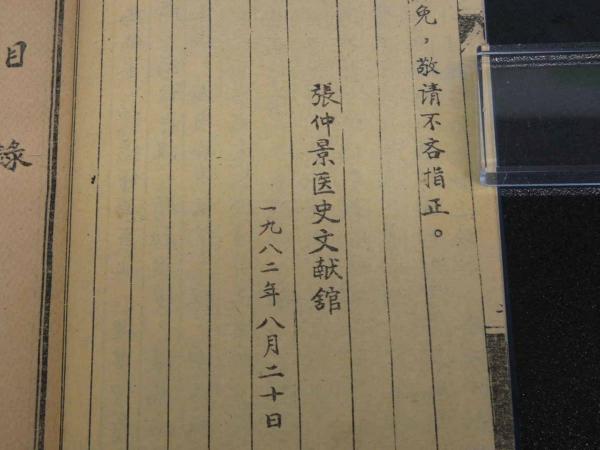 免，敬请不吝指正。
張仲景医史文献舘
一九八二年八月二十日
目錄